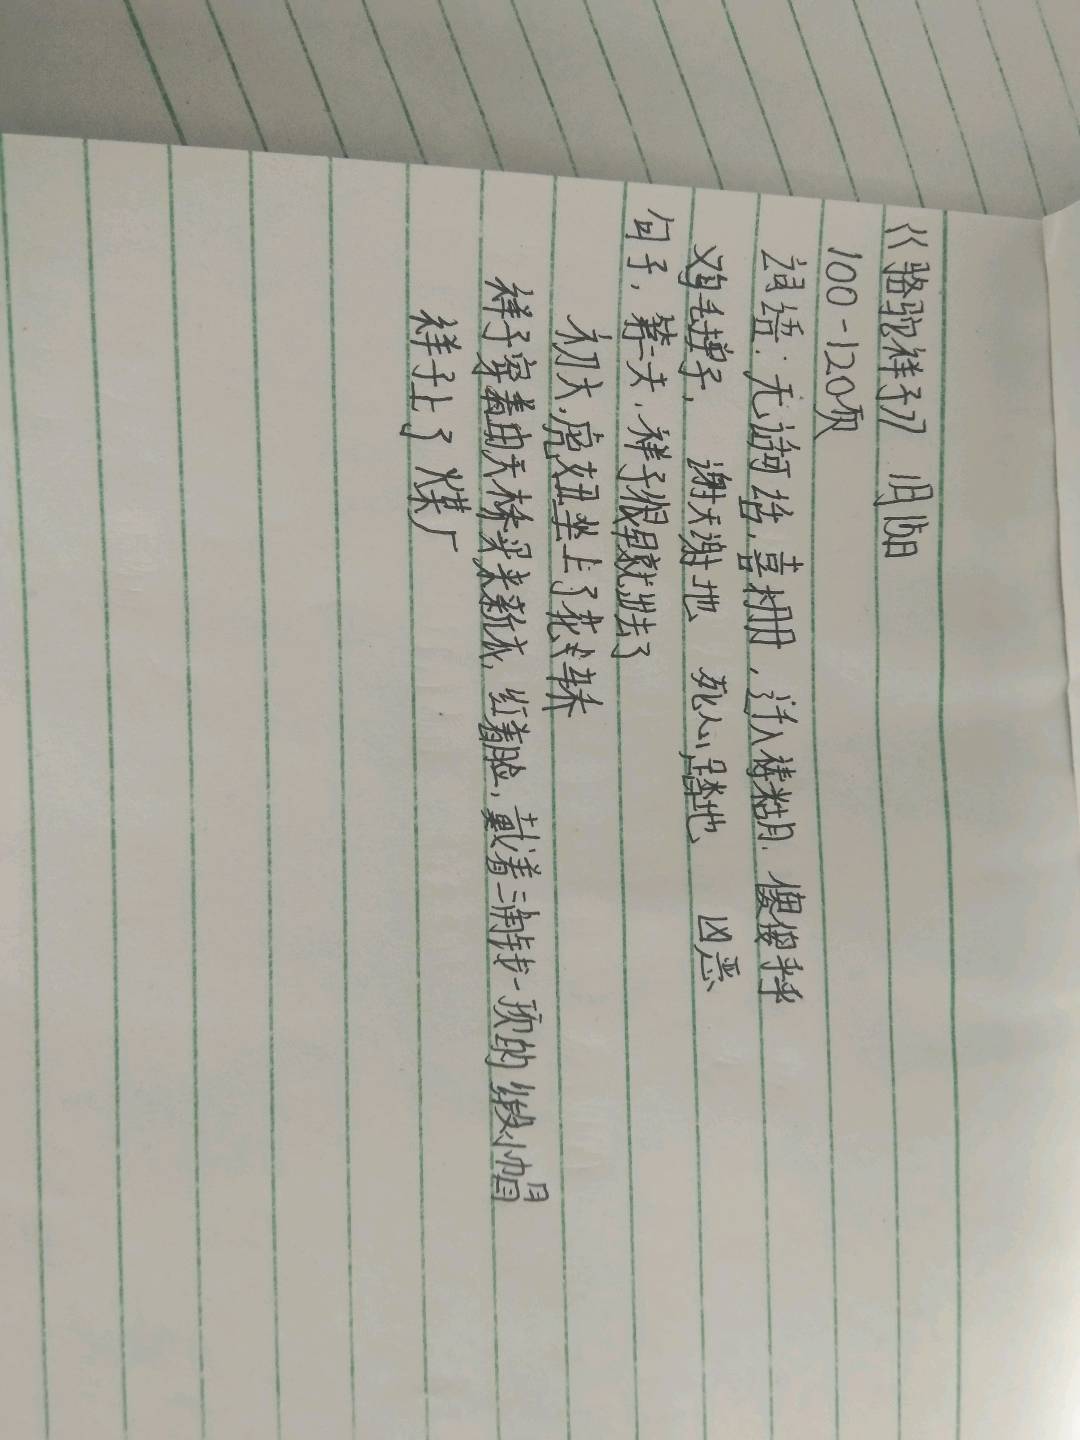 《骆驼祥子》 1月15日
100-120页
词语：无话可给，喜棚，过人，精糊．傻傻乎乎
鸡毛掸子， 谢天谢地 死心踏地 凶恶
句子，第二天，祥子很早就出去了
初六，虎妞坐上了花轿
祥子穿着由天桥买来新衣，红着脸，戴着三角钱一顶的缎小帽
祥子上了煤厂